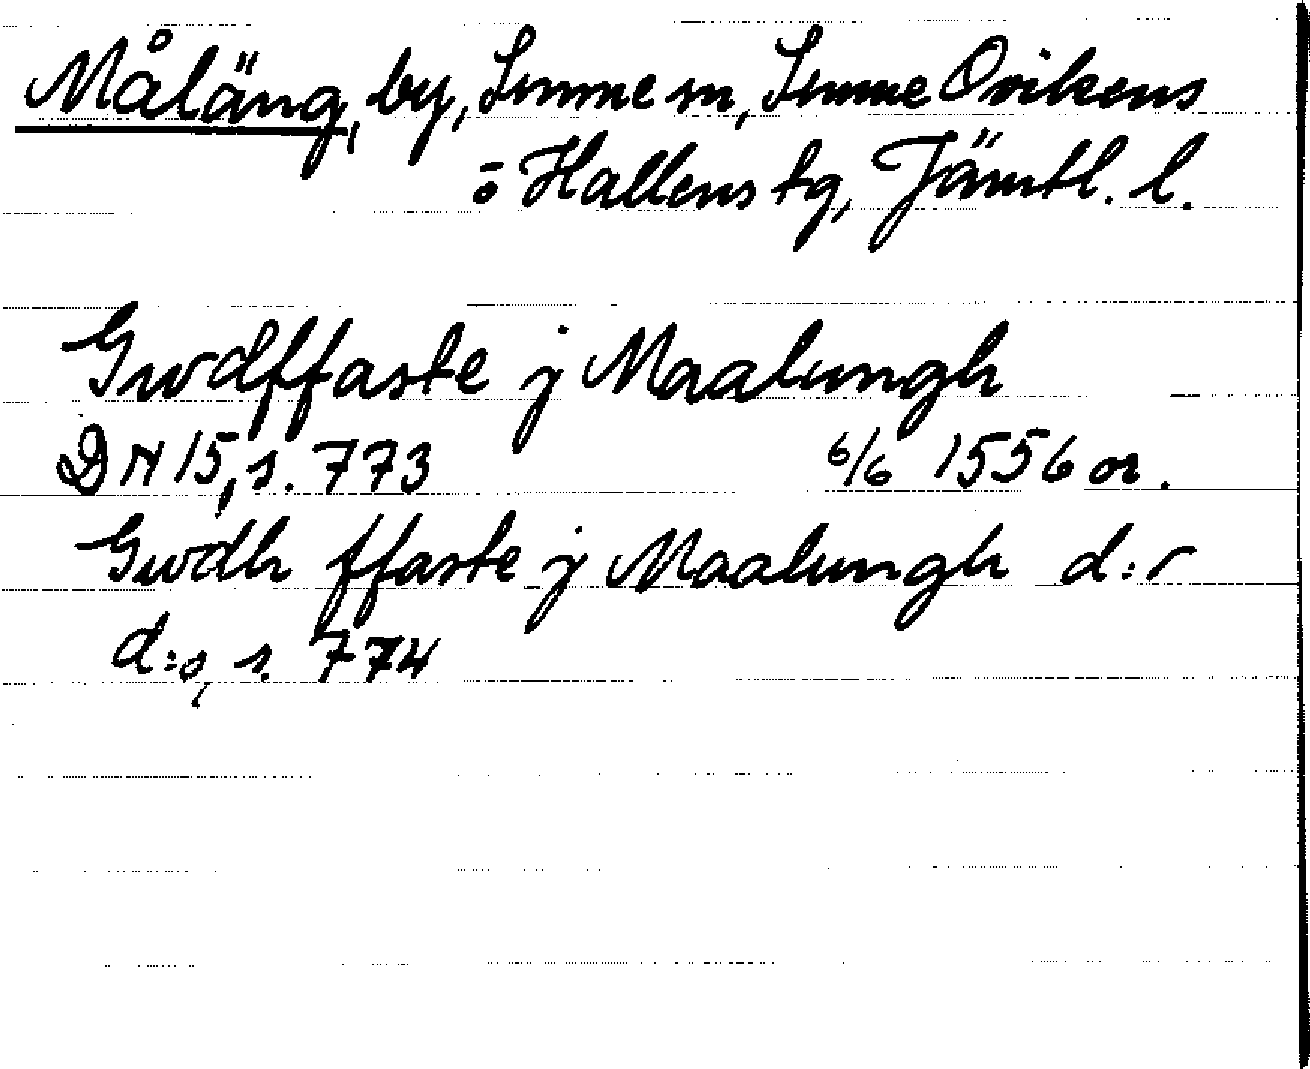 Måläng, by, Sunne sn, Sunne Ovikens
o Hallens tg, Jämtl. l.
Gwdffaste j Maalungh
DN 15, s. 773 6/6 1556 or.
Gwdh ffaste j Maalungh d:r
d:o, s. 774